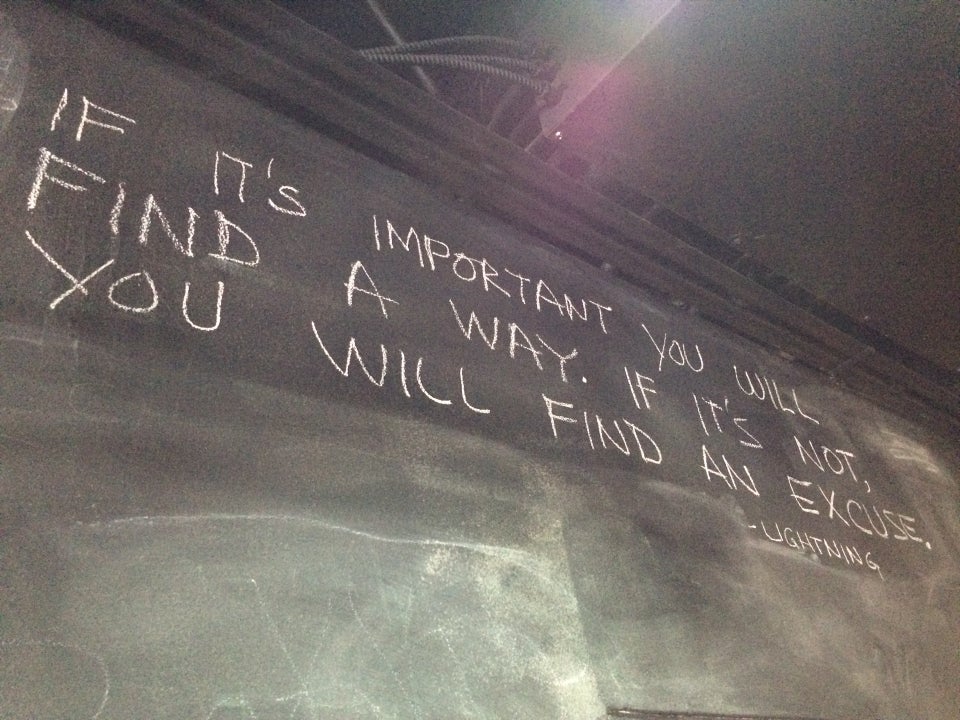 IF IT'S IMPORTANT YOU WILL
FIND A WAY. IF IT'S NOT,
YOU WILL FIND AN EXCUSE.
-LIGHTNING